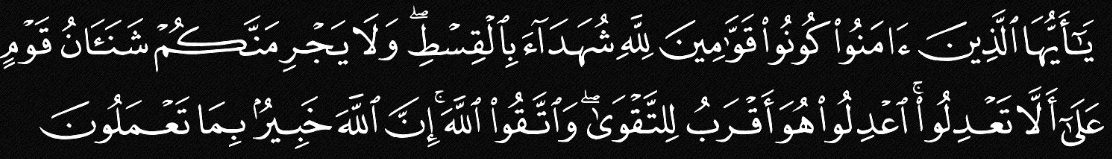 يَـٰٓأَيُّهَا ٱلَّذِينَ ءَامَنُوا۟ كُونُوا۟ قَوَّٰمِينَ لِلَّهِ شُهَدَآءَ بِٱلْقِسْطِ ۖ وَلَا يَجْرِمَنَّكُمْ شَنَـَٔانُ قَوْمٍ
عَلَىٰٓ أَلَّا تَعْدِلُوا۟ ۚ ٱعْدِلُوا۟ هُوَ أَقْرَبُ لِلتَّقْوَىٰ ۖ وَٱتَّقُوا۟ ٱللَّهَ ۚ إِنَّ ٱللَّهَ خَبِيرٌۢ بِمَا تَعْمَلُونَ